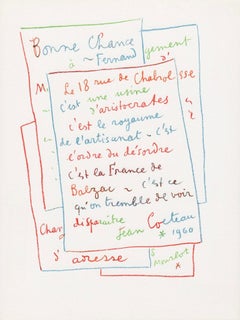 Bonne Chance
à ~ Fernand gement
M. Le 18 rue de Chabrol sse
c'est une usine
d'aristocrates
c'est le royaume
de l'artisanat ~ c'est
l'ordre du désordre
c'est la France de
Balzac ~ c'est ce
qu'on tremble de voir
disparaître
Chan Jean Cocteau
* 1960
s' adresse
Mourlot
*